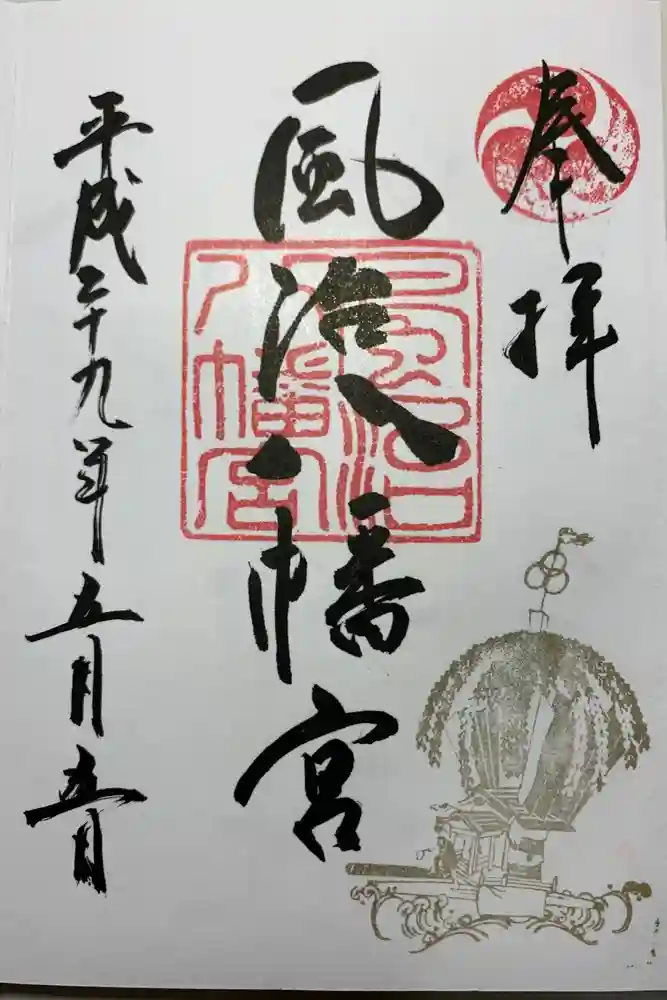 奉拝
風治八幡宮
風治
八幡宮
平成二十九年五月五日